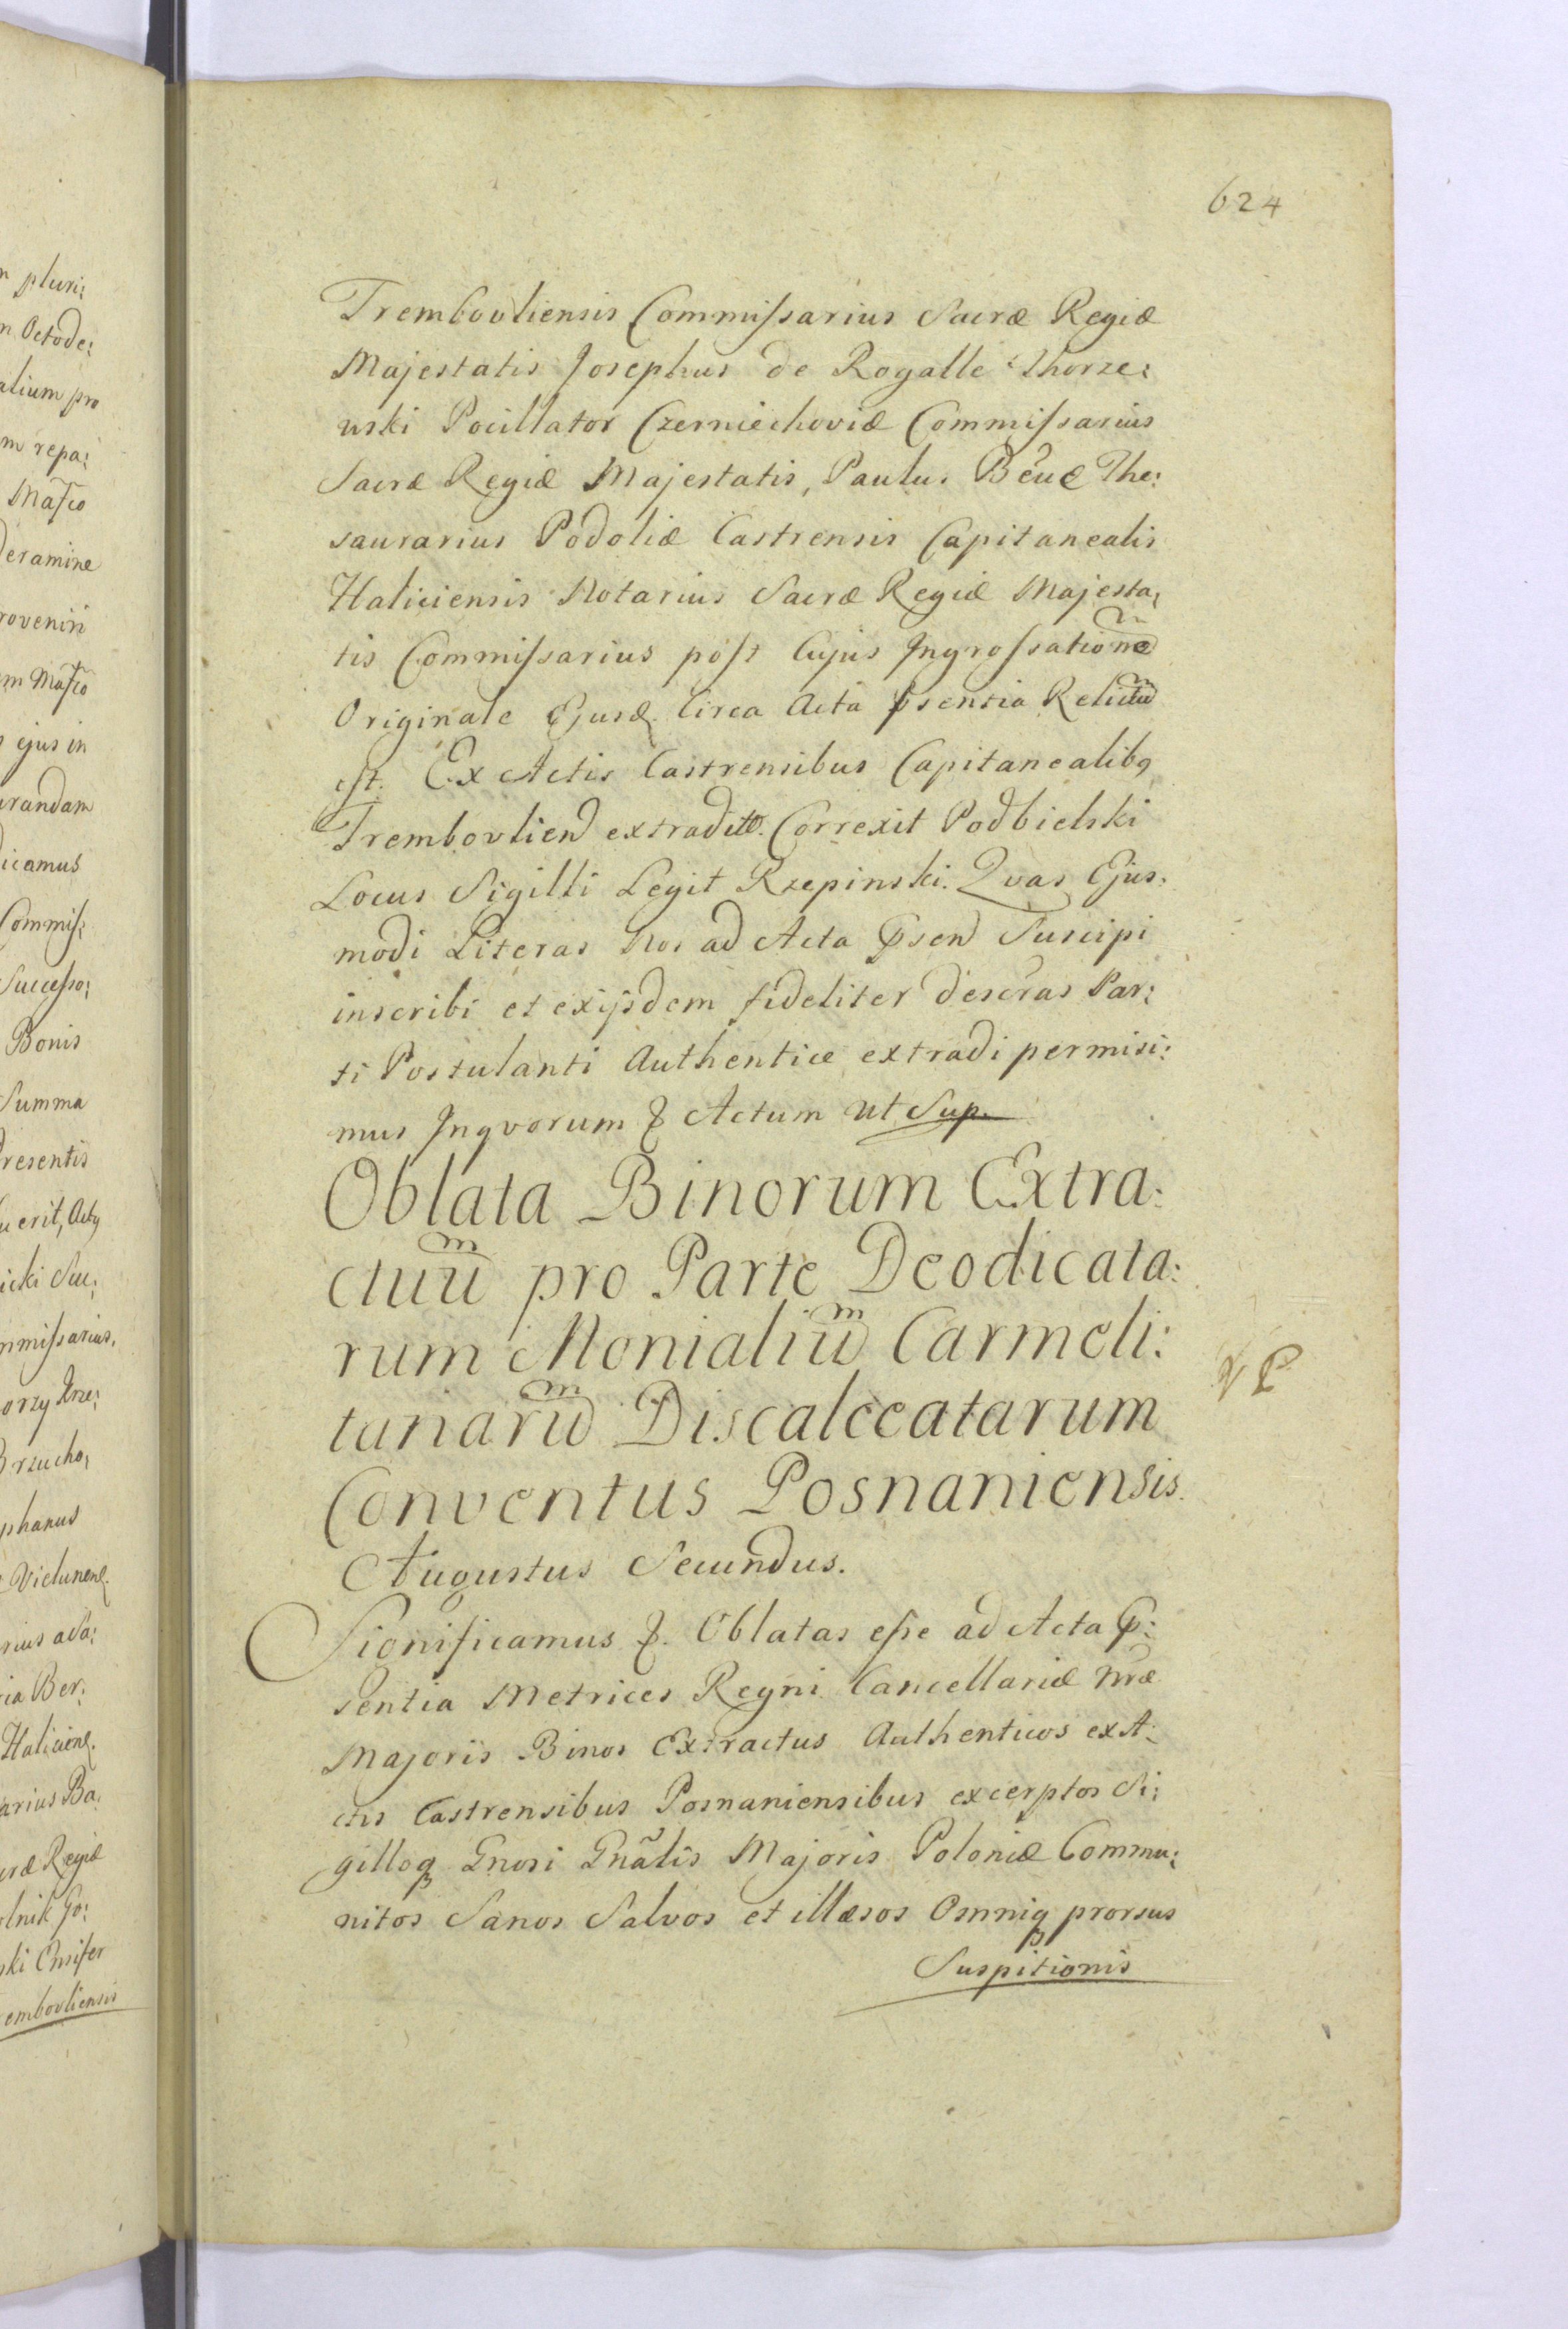 624
Trembovliensis Commiſsarius Sacræ Regiæ
Majestatis Josephus de Rogalle Thorze:
wski Pocillator Czerniechoviæ Commiſsarius
Sacræ Regiæ Majestatis, Paulus Bēuæ The:
saurarius Podoliæ Castrensis Capitanealis
Haliciensis Notarius Sacræ Regiæ Majesta:
tis Commiſsarius poſt Cujus Ingroſsatione᷄
Originale Ejusd. Circa Acta Psentia Relictu᷄
eſt. Ex Actis Castrensibus Capitanealibꝯ
Trembovlien extradit. Correxit Podbielski
Locus Sigilli Legit Rzepinski. Qvas Ejus:
modi Literas Nos ad Acta Psen Suscipi
inscribi et exijsdem fideliter descrās Par:
ti Postulanti Authentice extradi permisi:
mus Inqvorum & Actum ut Sup.
Oblata Binorum Extra:
ctuū pro Parte Deodicata:
rum Monialiū Carmeli:
tanarū Discalceatarum
Conventus Posnaniensis.
Augustus Secundus.
Significamus &. Oblatas eſse ad Acta P:
sentia Metrices Regni Cancellariæ Nr̃æ
Majoris Binos Extractus Authenticos ex A:
ctis Castrensibus Posnaniensibus excerptos Si:
gilloq Gnosi Gnãlis Majoris Poloniæ Commu:
nitos Sanos Salvos et illæsos Omniq prorsus
Suspitionis
n pluri:
n Octode:
alium pro
m repa:
Maſco
deramine
roveniri
m Maſco
ejus in
urandam
dicamus
Commiſ:
Succeſso:
Bonis
Summa
resentis
uerit, Actꝯ
icki Suc:
mmiſsarius.
orzy Krze:
Brzucho:
phanus
Vielunen.
rius ada:
ria Ber:
Halicien.
arius Ba:
cræ Regiæ
olnik Jo:
ski Ensifer
embovliensis